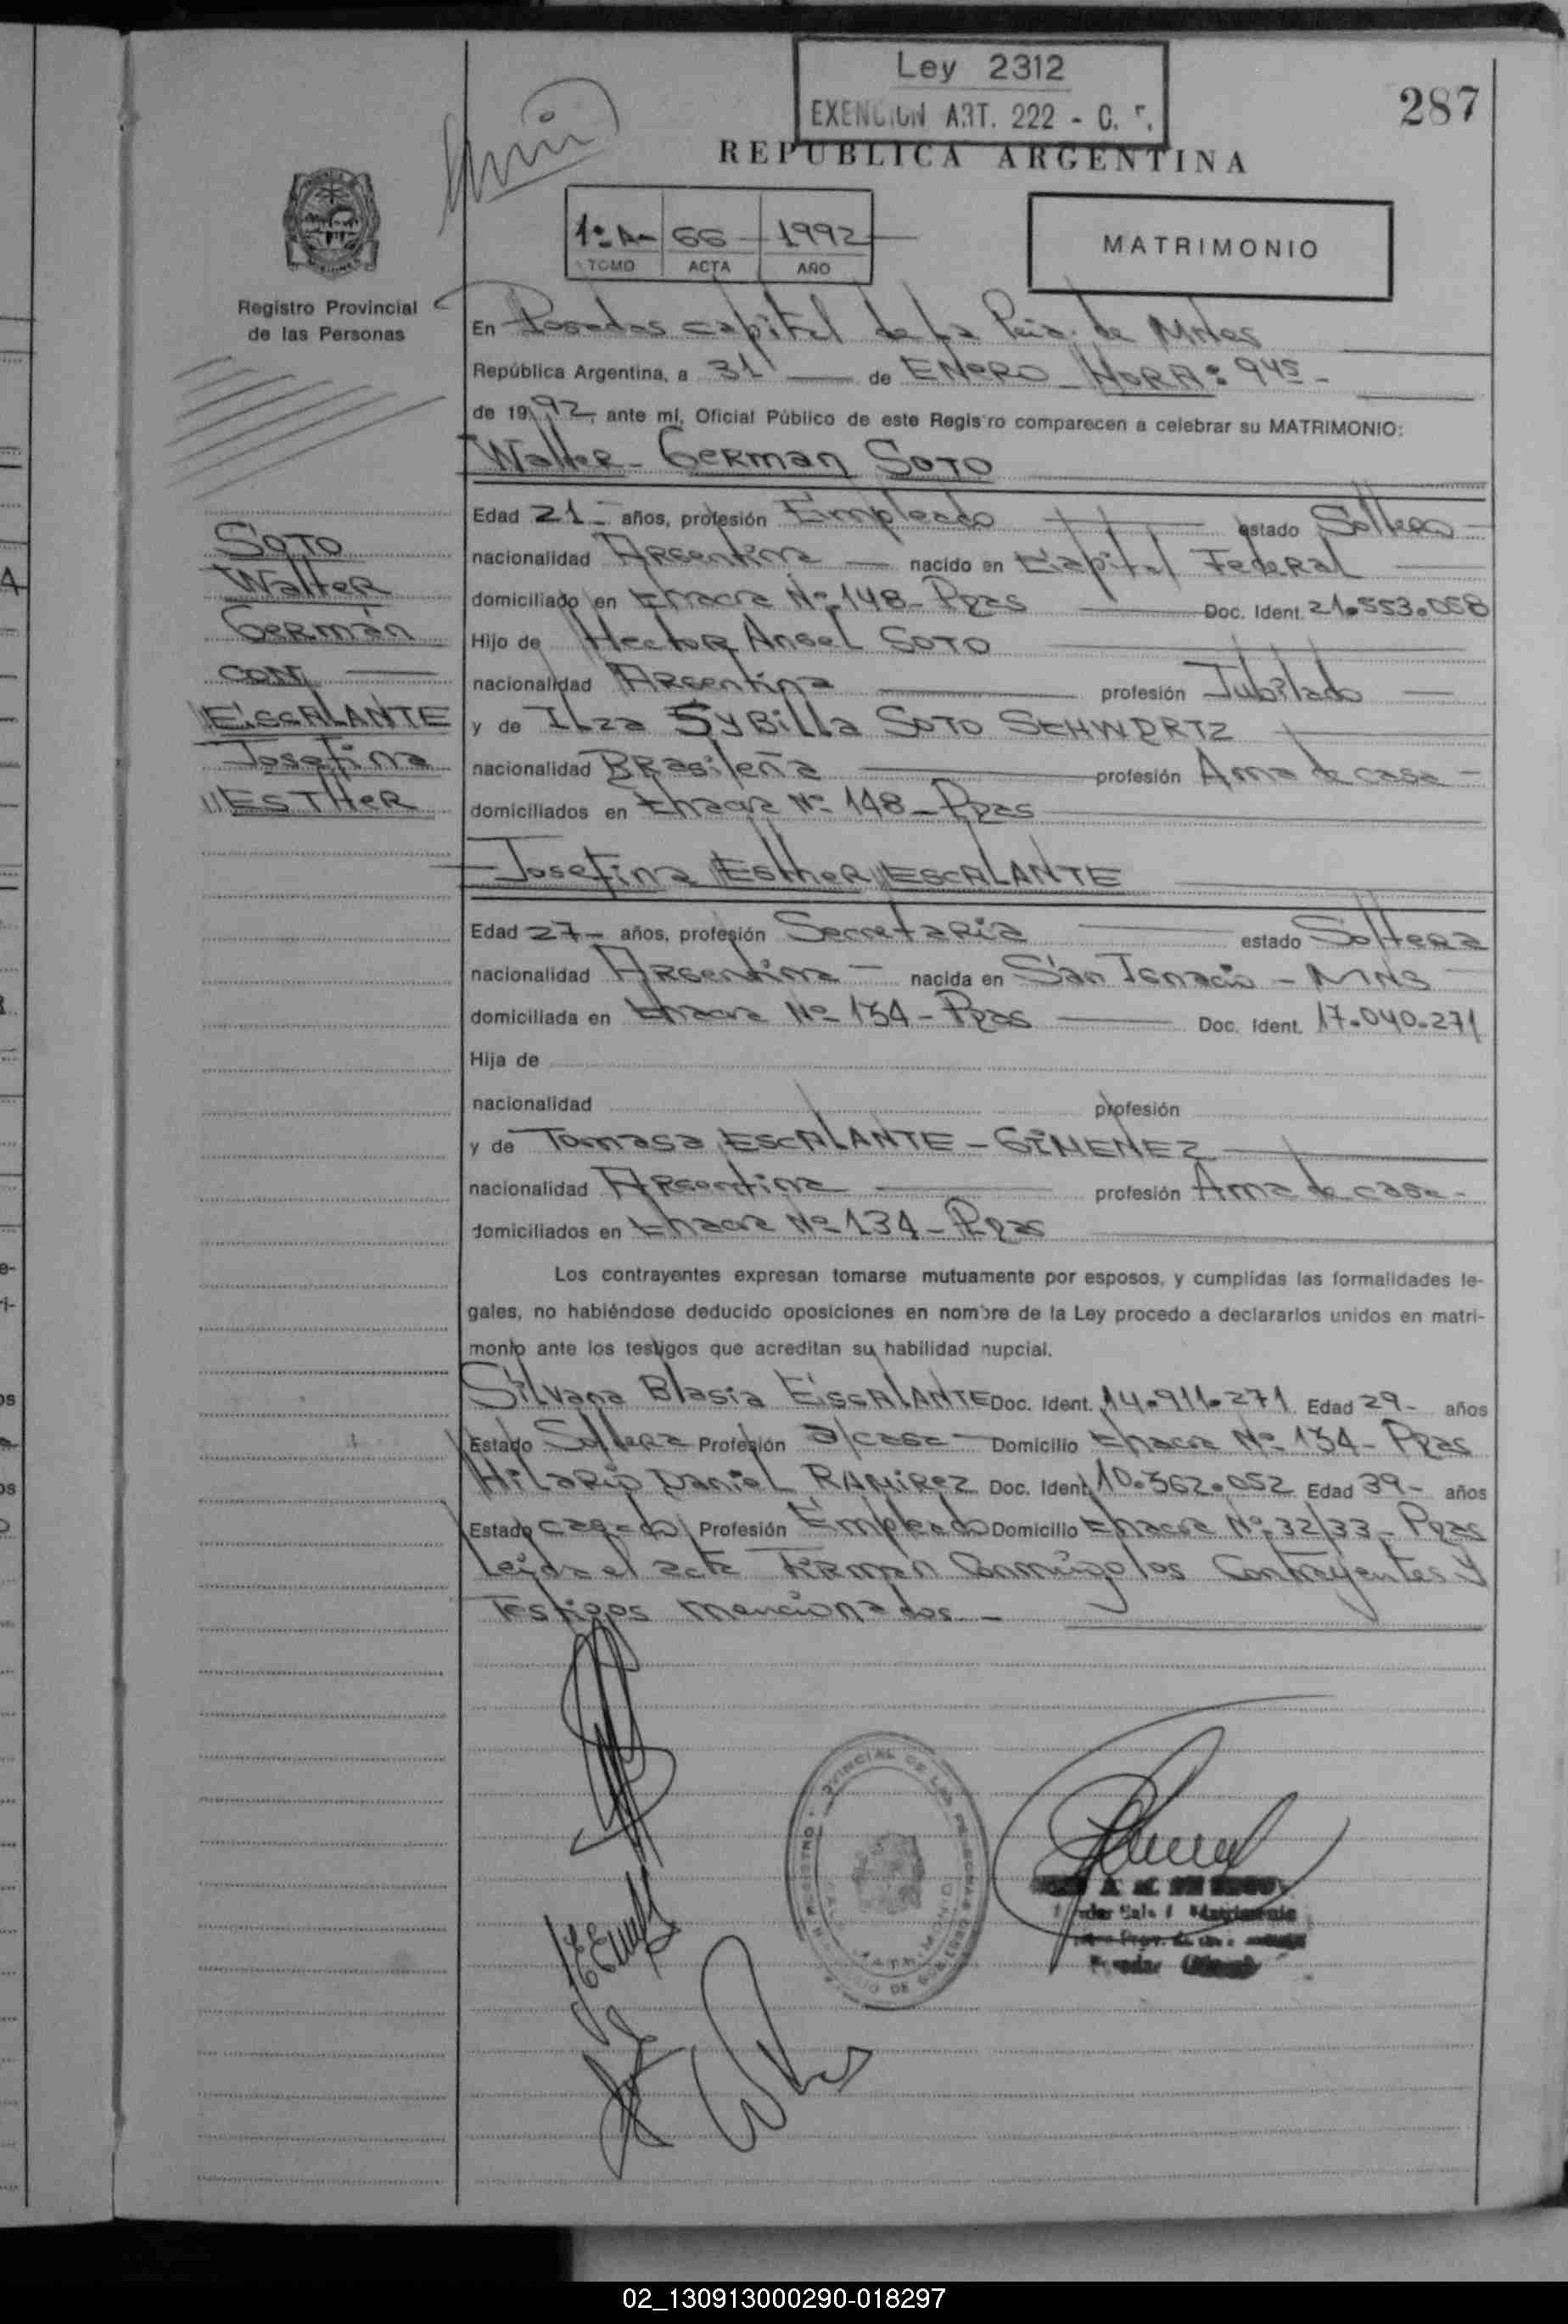 Ley 2312
EXENCION ART. 222 - C. F.
287
REPUBLICA ARGENTINA
1º A- 66 - 1992
TOMO ACTA AÑO
MATRIMONIO
Registro Provincial
de las Personas
En Posadas capital de La Pcia. de Mnes
República Argentina, a 31 de ENERO - HORA: 945 -
de 1992, ante mí, Oficial Público de este Registro comparecen a celebrar su MATRIMONIO:
Walter - German SOTO
Edad 21 - años, profesión Empleado estado Soltero
nacionalidad Argentina nacido en Capital Federal
domiciliado en Chacra Nº 148 - Pdas Doc. Ident. 21.553.058
Hijo de Hector Angel SOTO
nacionalidad Argentina profesión Jubilado
y de Ilza SYBilla SOTO SCHWDRTZ
nacionalidad BRasileña profesión Ama de casa -
domiciliados en Chacra Nº 148 - Pdas
SOTO
Walter
Germán
CON
ESCALANTE
Josefina
ESTHER
Josefina Esther ESCALANTE
Edad 27 - años, profesión Secretaria estado Soltera
nacionalidad Argentina - nacida en San Ignacio - MNS
domiciliada en Chacra Nº 134 - Pdas Doc. Ident. 17.040.271
Hija de
nacionalidad profesión
y de Tomasa ESCALANTE - GIMENEZ
nacionalidad Argentina profesión Ama de casa -
domiciliados en Chacra Nº 134 - Pdas
Los contrayentes expresan tomarse mutuamente por esposos, y cumplidas las formalidades le-
gales, no habiéndose deducido oposiciones en nombre de la Ley procedo a declararlos unidos en matri-
monio ante los testigos que acreditan su habilidad nupcial.
Silvana Blasia ESCALANTE Doc. Ident. 14.911.271 Edad 29 - años
Estado Soltera Profesión a/casa - Domicilio Chacra Nº 134 - Pdas
Hilario Daniel RAMIREZ Doc. Ident. 10.362.052 Edad 39 - años
Estado casado Profesión Empleado Domicilio Chacra Nº 32/33 - Pdas
Leida el acta FIRMAN Conmigo los Contrayentes Y
Testigos mencionados. -
02_130913000290-018297